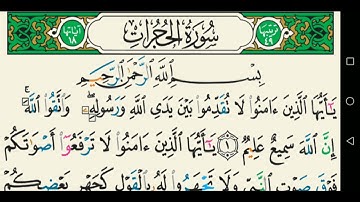 ترتيبها ٤٩ سُورَةُ الحُجُرَاتِ آياتها ١٨
بِسْمِ ٱللَّهِ ٱلرَّحْمَٰنِ ٱلرَّحِيمِ
يَٰٓأَيُّهَا ٱلَّذِينَ ءَامَنُوا۟ لَا تُقَدِّمُوا۟ بَيْنَ يَدَىِ ٱللَّهِ وَرَسُولِهِۦ ۖ وَٱتَّقُوا۟ ٱللَّهَ ۚ
إِنَّ ٱللَّهَ سَمِيعٌ عَلِيمٌ ١ يَٰٓأَيُّهَا ٱلَّذِينَ ءَامَنُوا۟ لَا تَرْفَعُوٓا۟ أَصْوَٰتَكُمْ
فَوْقَ صَوْتِ ٱلنَّبِىِّ وَلَا تَجْهَرُوا۟ لَهُۥ بِٱلْقَوْلِ كَجَهْرِ بَعْضِكُمْ